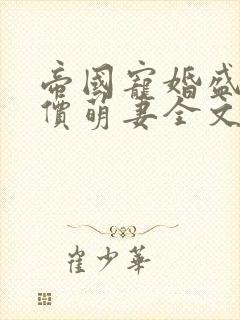 帝國寵婚盛
價萌妻全文
崔少華